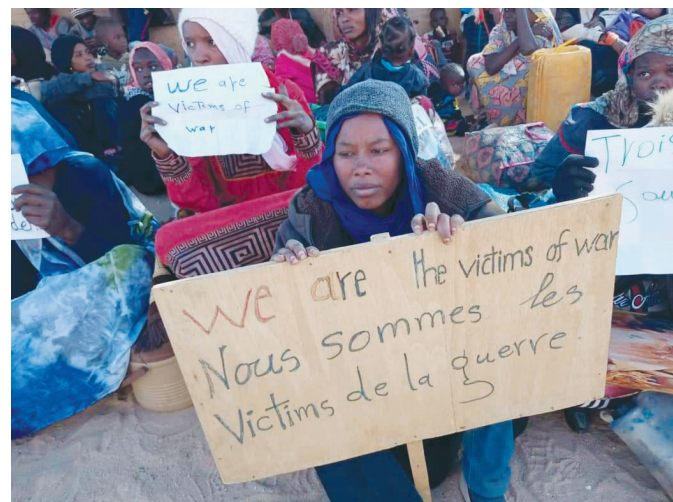 we are
victims of
war
Trois
We are the victims of war
Nous sommes les
Victims de la guerre